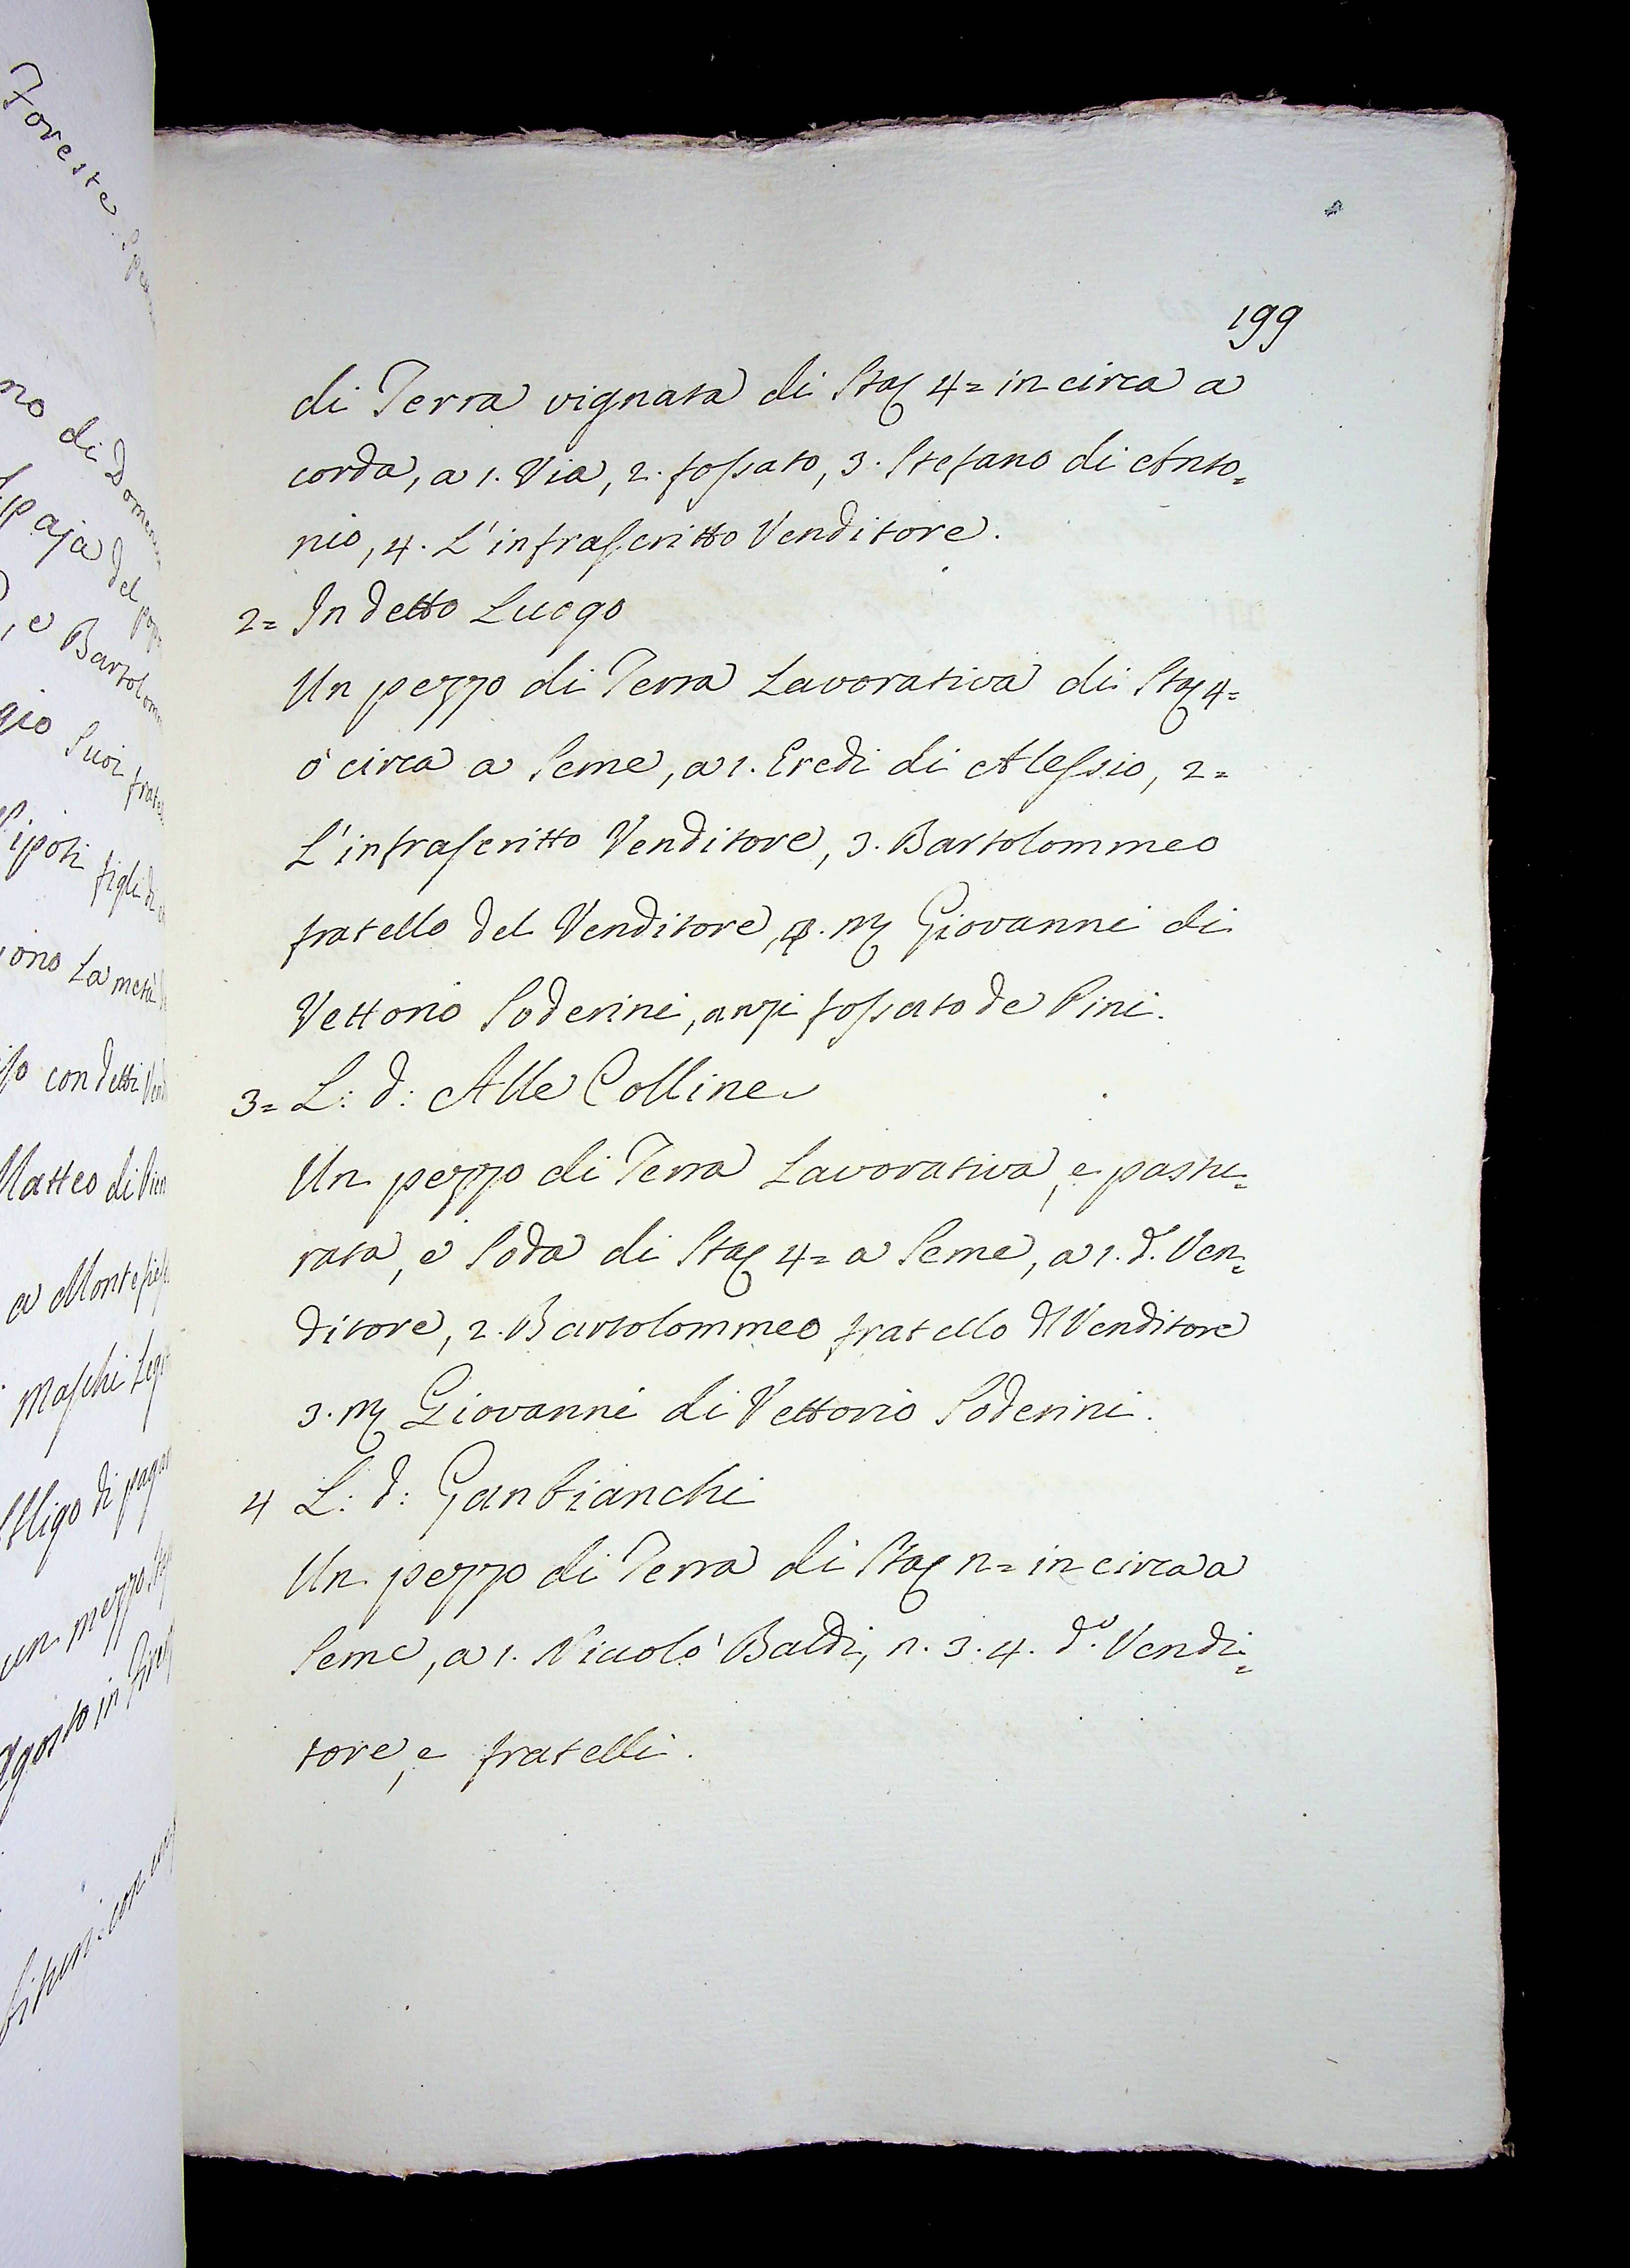 199
di Terra vignata di Staj 4= in circa a
corda, a 1. Via, 2. fossato, 3. Stefano di Anto=
nio, 4. L'infrascritto Venditore.
2= In detto Luogo
Un pezzo di Terra Lavorativa di Staj 4=
ò circa a Seme, a 1. Eredi di Alessio, 2=
L'infrascritto Venditore, 3. Bartolommeo
fratello del Venditore, 4. M Giovanni di
Vettorio Soderini, anzi fossato de Pini.
3= L: d: Alle Colline
Un pezzo di Terra Lavorativa, e pastu=
rata, e Soda di Staj 4= a Seme, a 1. d. Ven=
ditore, 2. Bartolommeo fratello dl Venditore
3. M Giovanni di Vettorio Soderini.
4 L: d: Ganbianchi
Un pezzo di Terra di Staj n= in circa a
Seme, a 1. Niccolò Baldi, n. 3. 4. d.o Vendi=
tore, e fratelli.
Foreste
no di Domen
paja del pop
, e Bartolom
gio Suoi frate
Nipoti figli di
ono La metà
con detti Vend
Matteo di Pier
a Montepie
Maschi Leg
obligo di pagar
un mezzo
Agosto in